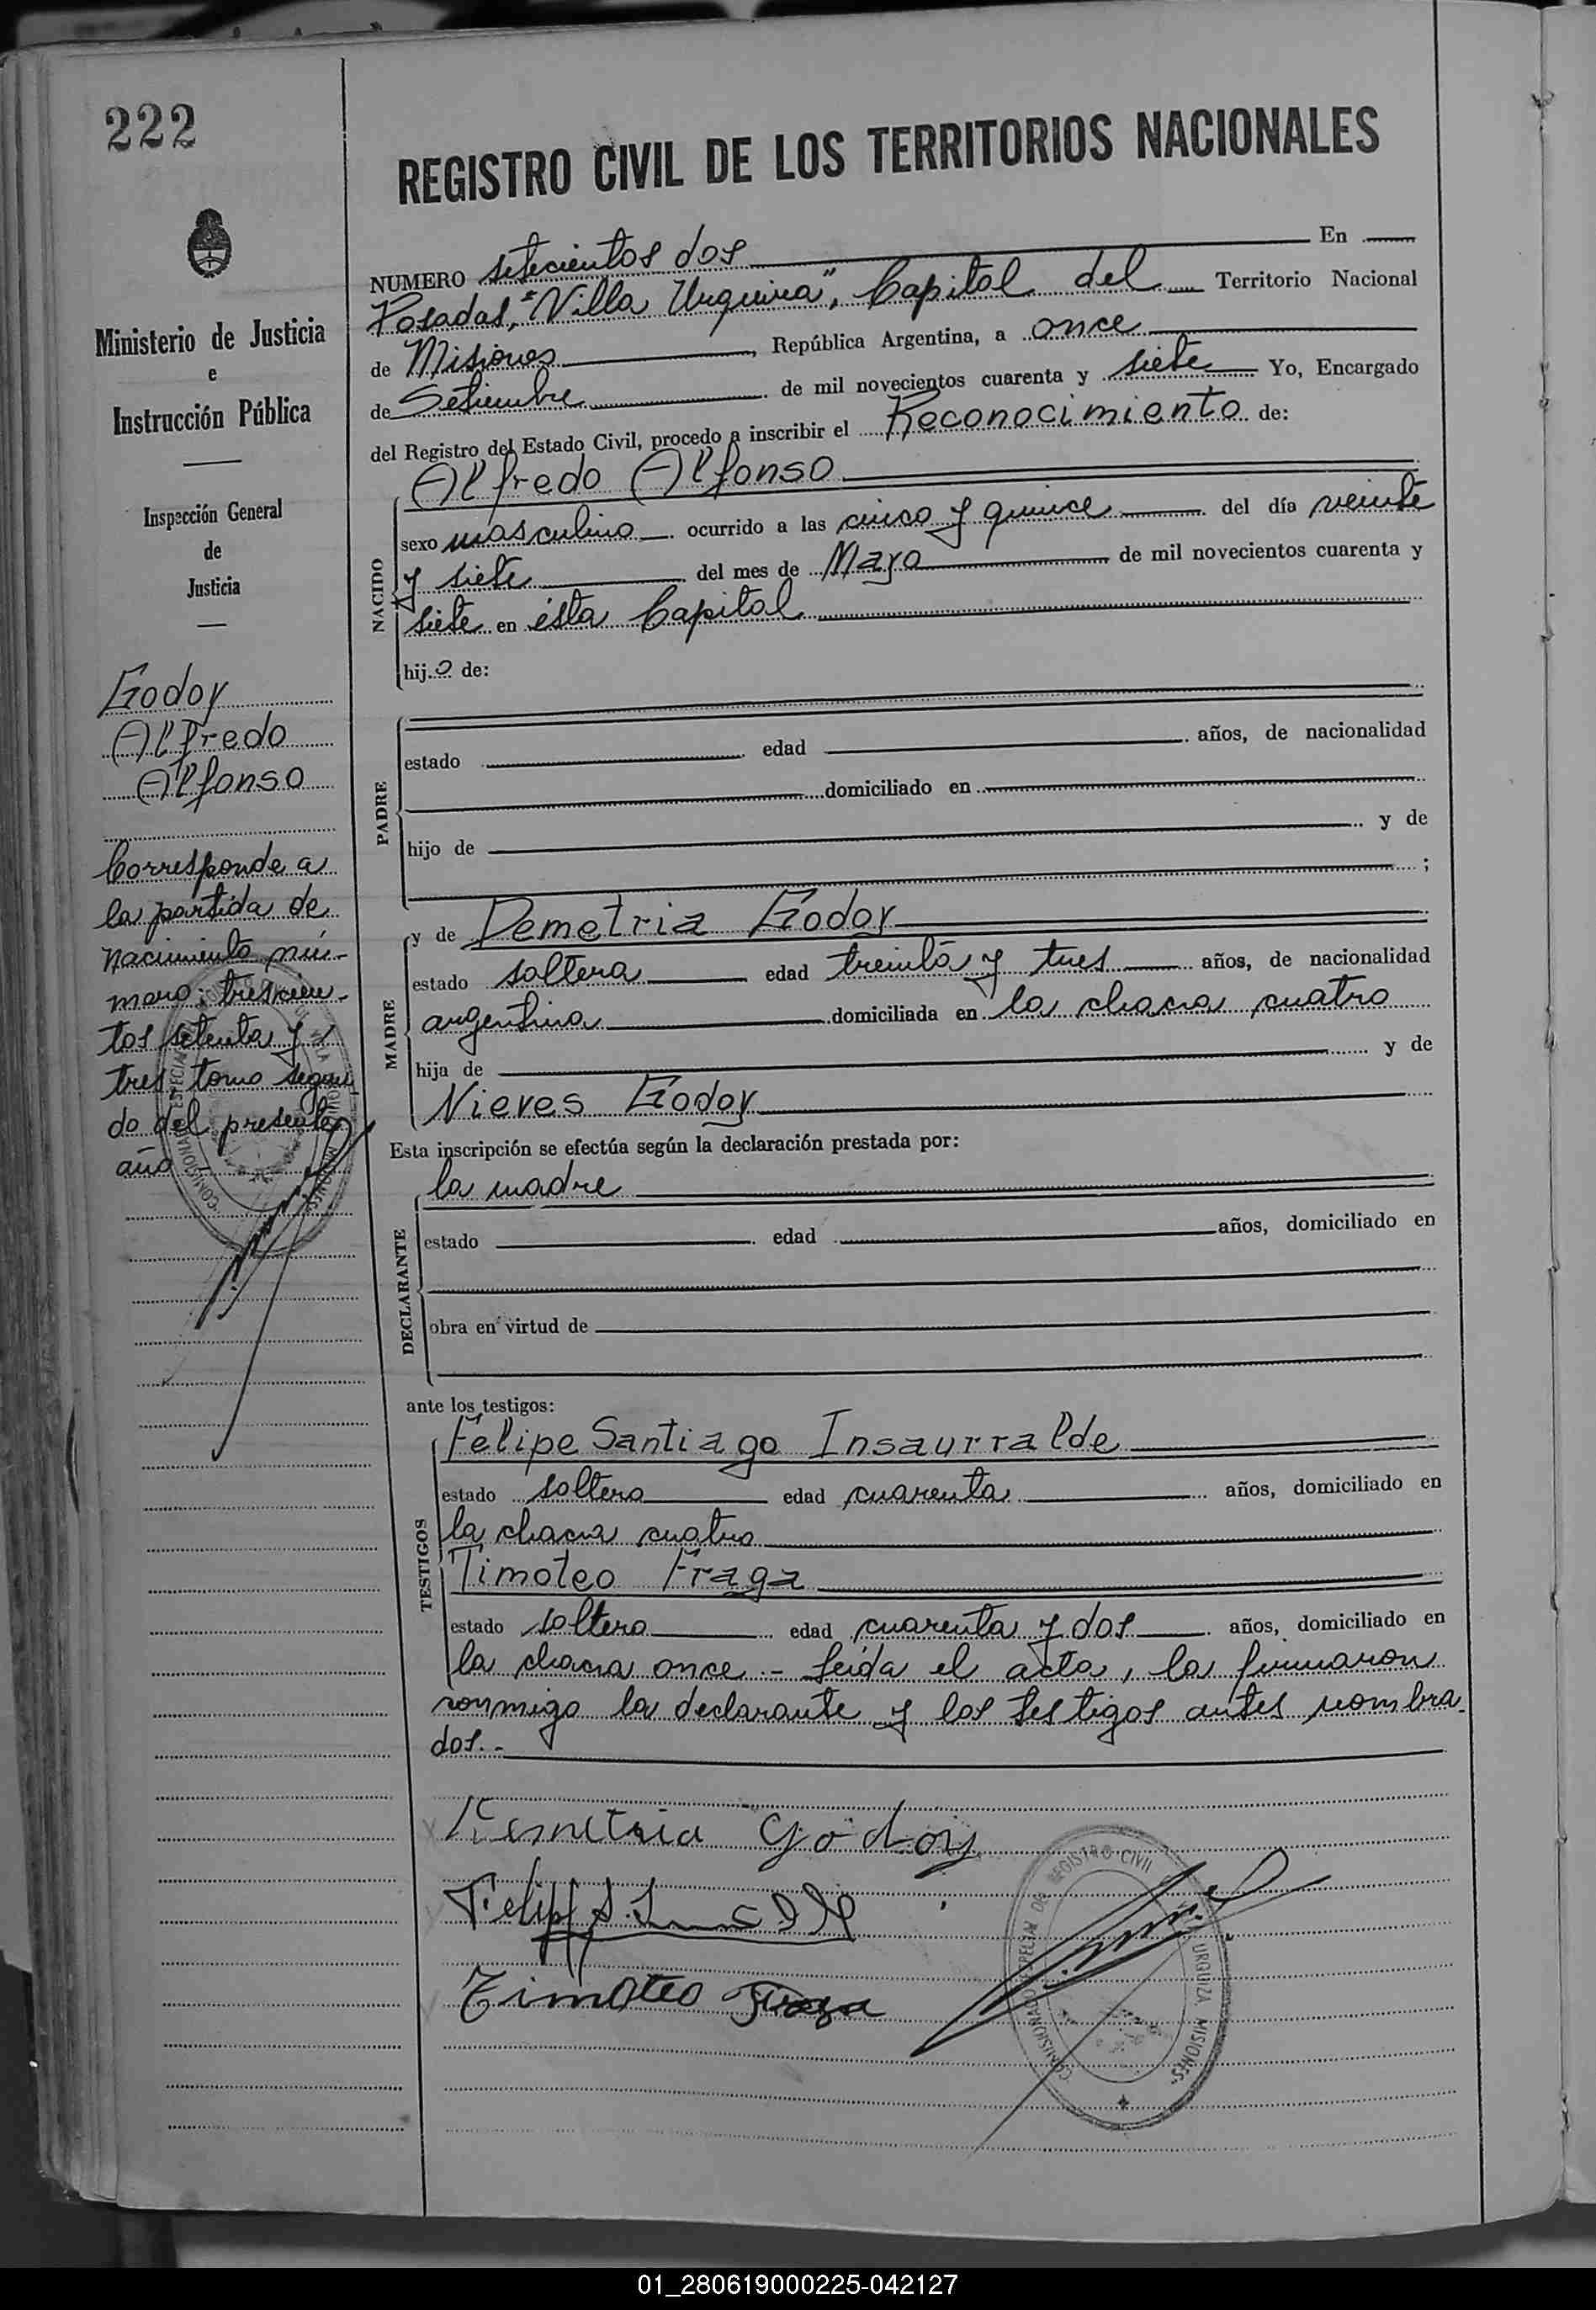 222
REGISTRO CIVIL DE LOS TERRITORIOS NACIONALES
Ministerio de Justicia
e
Instrucción Pública
Inspección General
de
Justicia
Godoy
Alfredo
Alfonso
Corresponde a
la partida de
nacimiento nú-
mero: trescien-
tos setenta y
tres, tomo segun
do del presente
año
NUMERO setecientos dos En
Posadas, "Villa Urquiza", Capital del Territorio Nacional
de Misiones, República Argentina, a once
de Setiembre de mil novecientos cuarenta y siete Yo, Encargado
del Registro del Estado Civil, procedo a inscribir el Reconocimiento de:
NACIDO
Alfredo Alfonso
sexo masculino ocurrido a las cinco y quince del día veinte
y siete del mes de Mayo de mil novecientos cuarenta y
siete en ésta Capital
hijo de:
PADRE
estado edad años, de nacionalidad
domiciliado en
hijo de y de
;
MADRE
y de Demetria Godoy
estado soltera edad treinta y tres años, de nacionalidad
argentina domiciliada en la chacra cuatro
hija de y de
Nieves Godoy
Esta inscripción se efectúa según la declaración prestada por:
DECLARANTE
la madre
estado edad años, domiciliado en
obra en virtud de
ante los testigos:
TESTIGOS
Felipe Santiago Insaurralde
estado soltero edad cuarenta años, domiciliado en
la chacra cuatro
Timoteo Fraga
estado soltero edad cuarenta y dos años, domiciliado en
la chacra once.- Leída el acta, la firmaron
conmigo la declarante y los testigos antes nombra-
dos.-
Demetria Godoy
Felipe S.
Timoteo Fraga
REGISTRO CIVIL
URQUIZA MISIONES
01_280619000225-042127